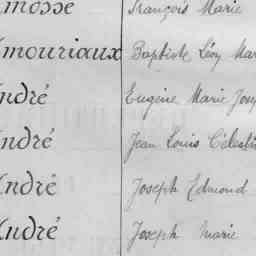 mosse François Marie
mouriaux Baptiste Léon Mar
André Eugène Marie Jos
André Jean Louis Célesti
André Joseph Edmond
André Joseph Marie